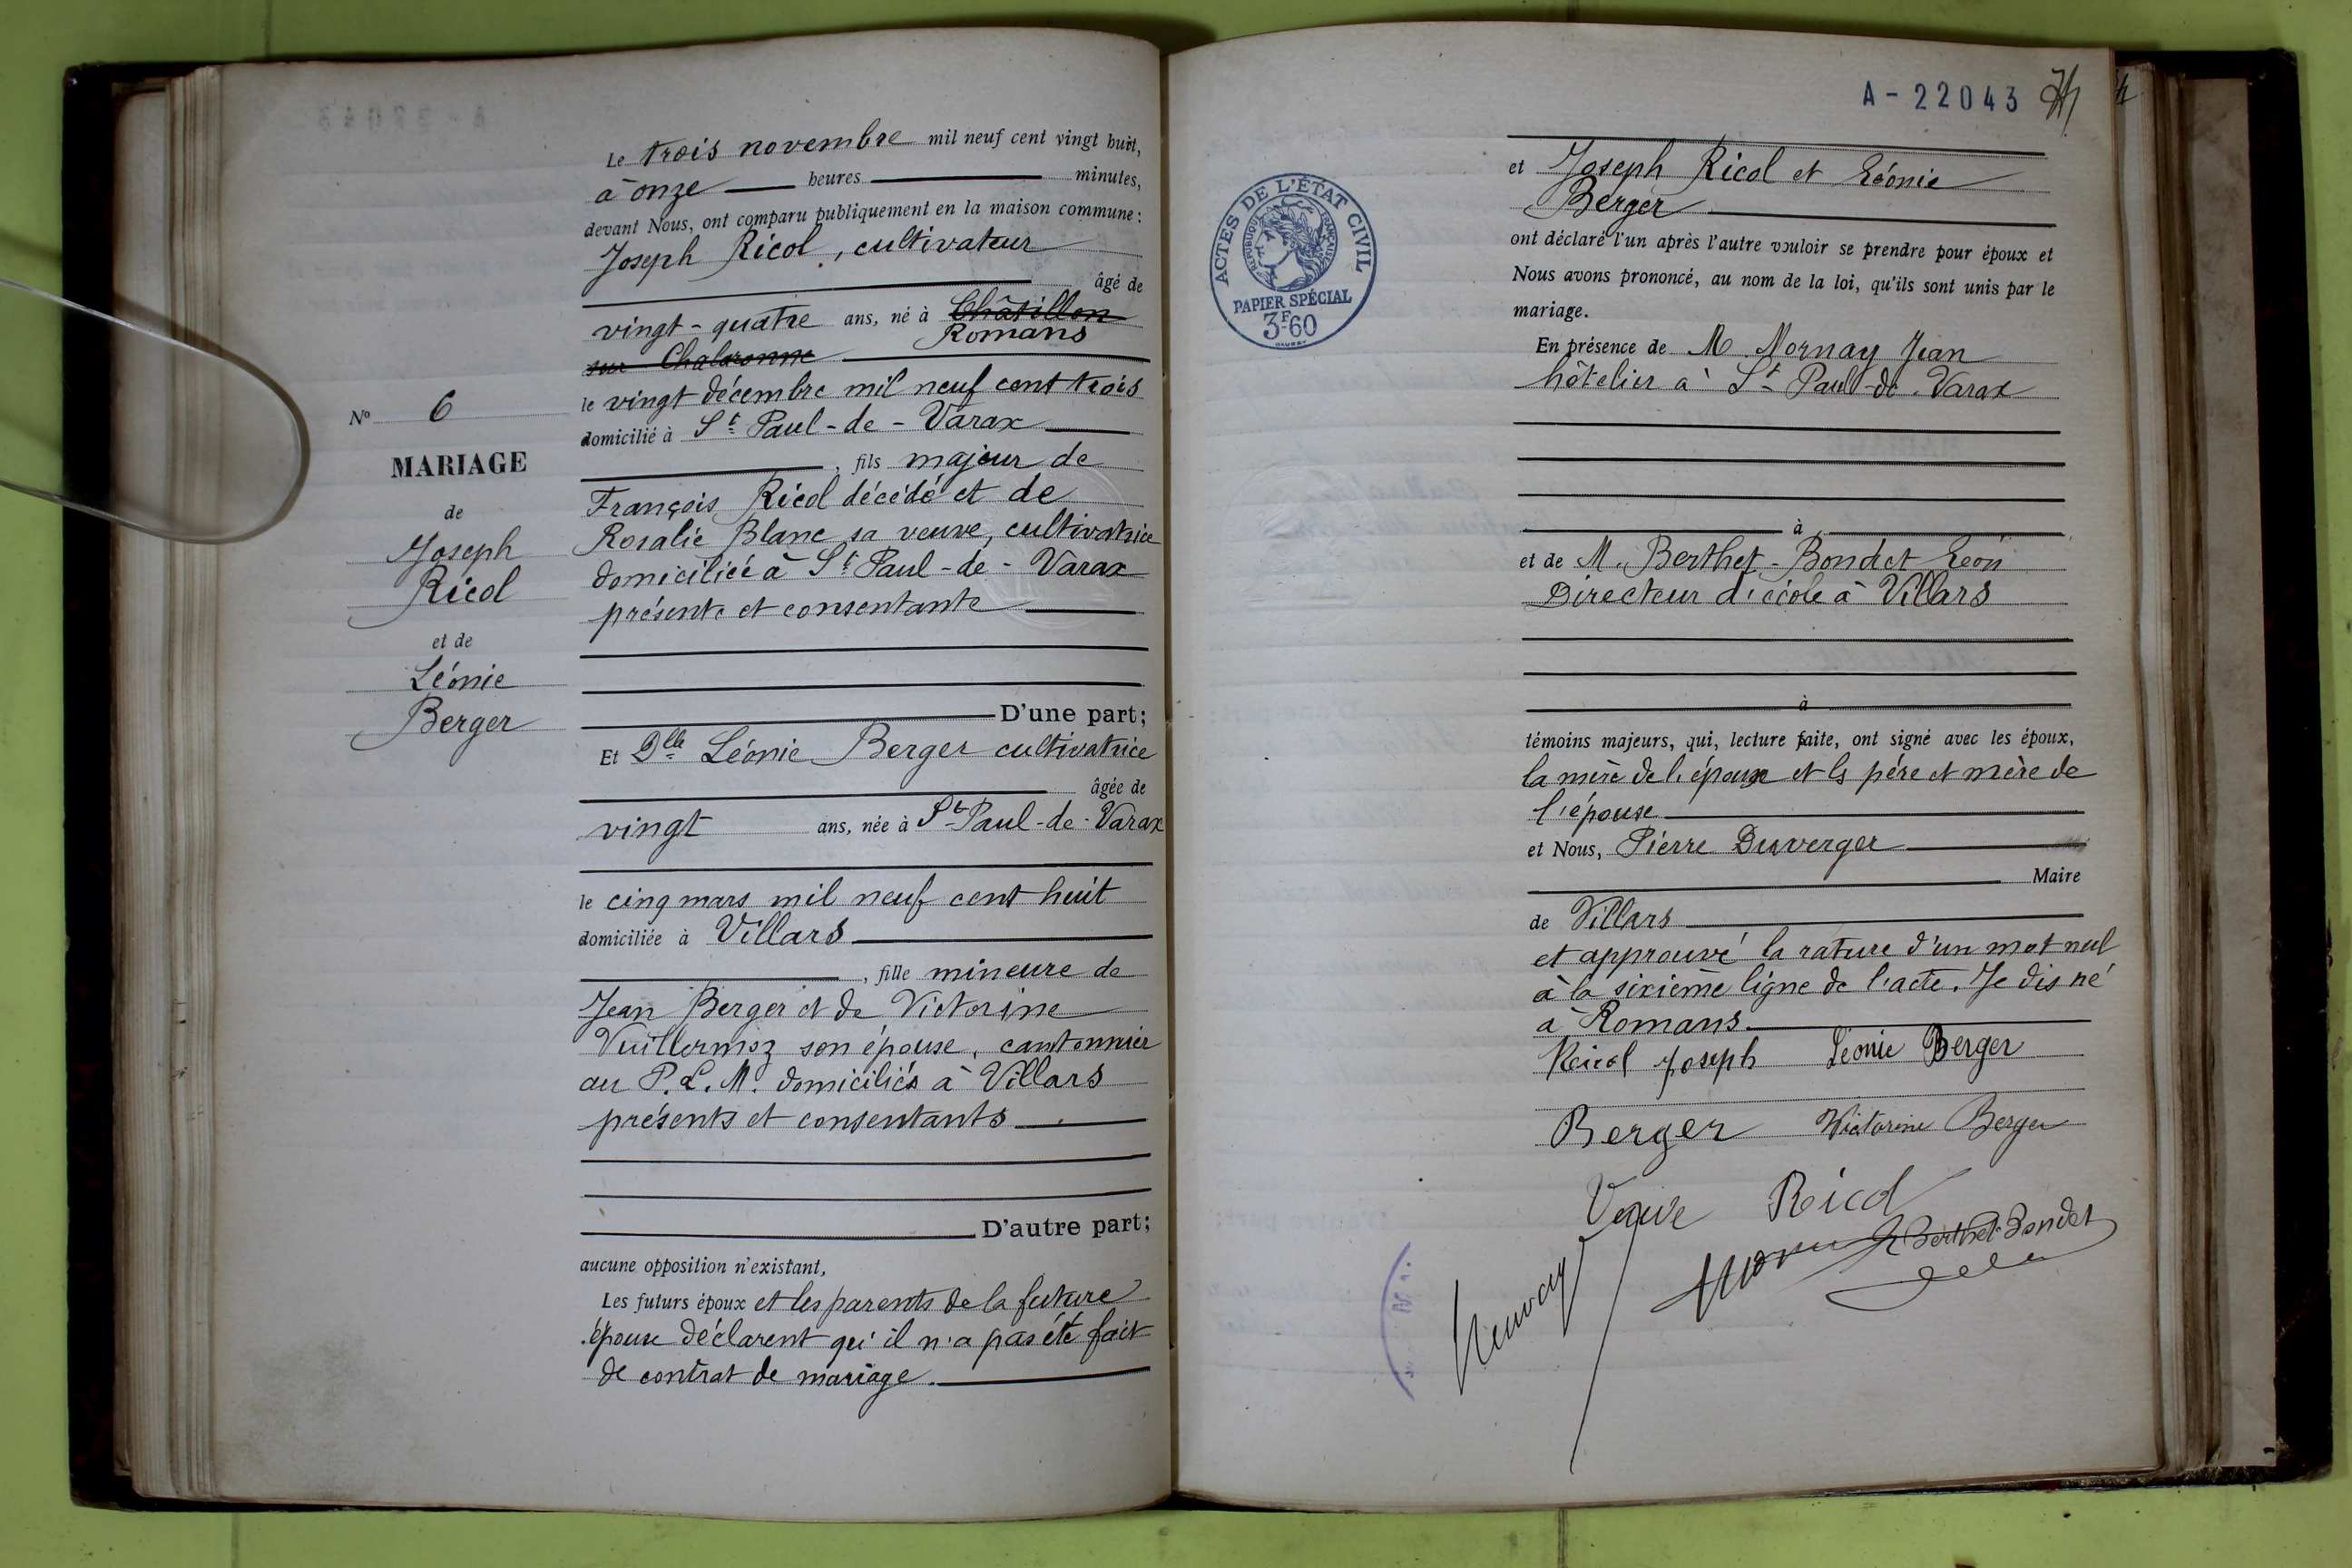 Le trois novembre mil neuf cent vingt huit,
à onze heures minutes,
devant Nous, ont comparu publiquement en la maison commune :
Joseph Ricol, cultivateur
âgé de
vingt-quatre ans, né à Châtillon
Romans
sur Chalaronne
le vingt décembre mil neuf cent trois
domicilié à St Paul-de-Varax
, fils majeur de
François Ricol décédé et de
Rosalie Blanc sa veuve, cultivatrice
domiciliée à St Paul-de-Varax
présente et consentante
D'une part;
Et Dlle Léonie Berger cultivatrice
âgée de
vingt ans, née à St-Paul-de-Varax
le cinq mars mil neuf cent huit
domiciliée à Villars
, fille mineure de
Jean Berger et de Victorine
Vuillermoz son épouse, cantonnier
au P.L.M. domiciliés à Villars
présents et consentants
D'autre part;
aucune opposition n'existant,
Les futurs époux et les parents de la future
épouse déclarent qu'il n'a pas été fait
de contrat de mariage.
No 6
MARIAGE
de
Joseph
Ricol
et de
Léonie
Berger
A-22043
ACTES DE L'ÉTAT CIVIL
RÉPUBLIQUE FRANÇAISE
PAPIER SPÉCIAL
3F60
et Joseph Ricol et Léonie
Berger
ont déclaré l'un après l'autre vouloir se prendre pour époux et
Nous avons prononcé, au nom de la loi, qu'ils sont unis par le
mariage.
En présence de M Mornay Jean
hôtelier à St Paul-de-Varax
à
et de M. Berthet-Bondet Léon
Directeur d'école à Villars
à
témoins majeurs, qui, lecture faite, ont signé avec les époux,
la mère de l'époux et ls père et mère de
l'épouse
et Nous, Pierre Duverger
Maire
de Villars
et approuvé la rature d'un mot nul
à la sixième ligne de l'acte. Je dis né
à Romans.
Ricol Joseph Léonie Berger
Berger Victorine Berger
Veuve Ricol
Berthet-Bondet